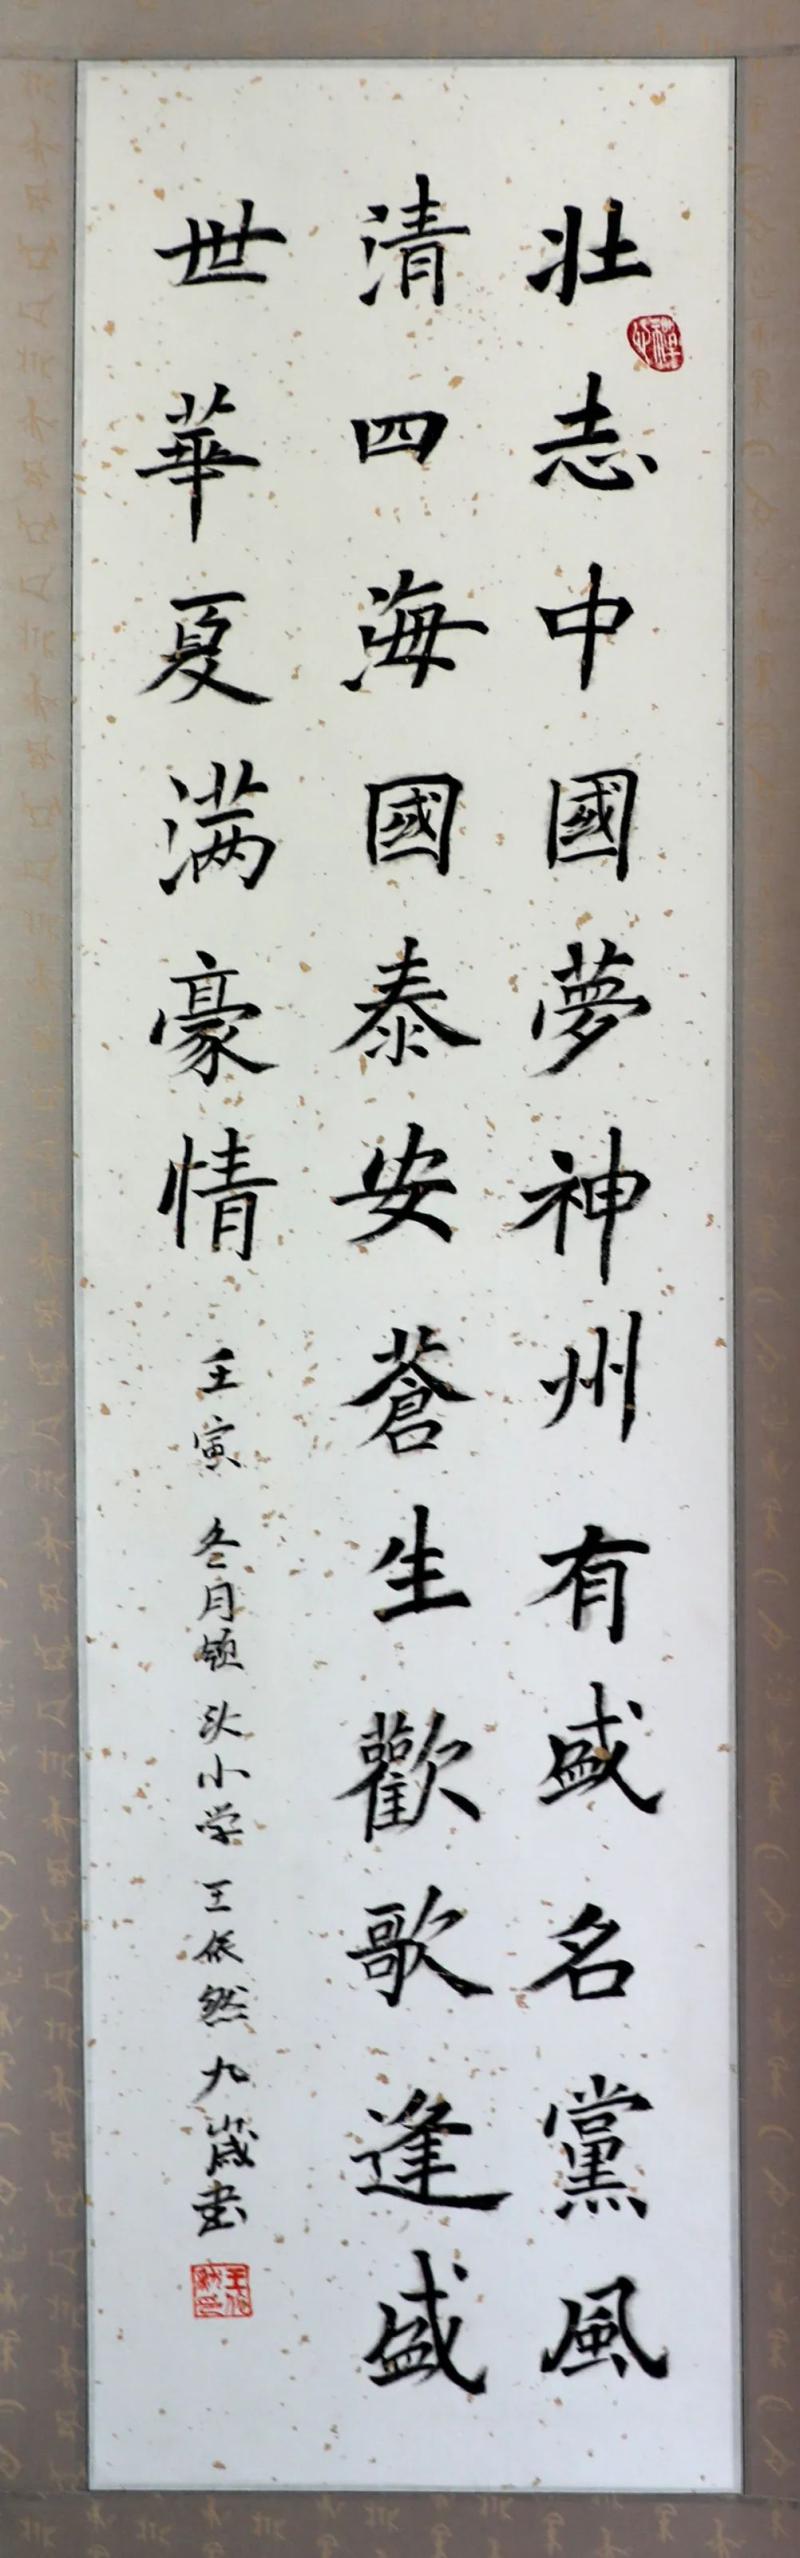 壮志中國夢神州有盛名黨風
清四海國泰安蒼生歡歌逢盛
世華夏满豪情
壬寅冬月领头小学王依然九歲书